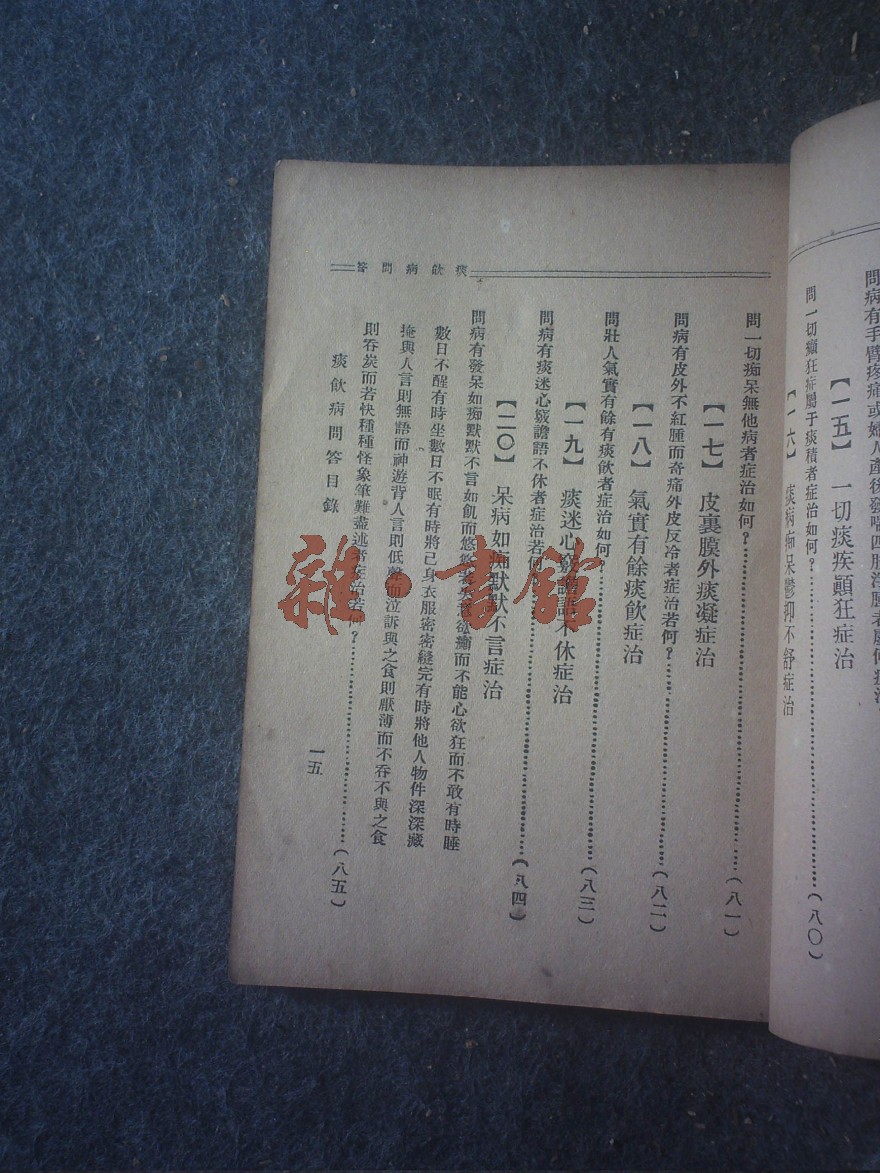 問病有手臂疼痛或婦人產後發喘四肢浮腫者
【一五】 一切痰疾顚狂症治
問一切癲狂症屬于痰積者症治如何？（八〇）
【一六】 痰病痴呆鬱抑不舒症治
痰飲病問答
問一切痴呆無他病者症治如何？（八一）
【一七】 皮裏膜外痰凝症治
問病有皮外不紅腫而奇痛外皮反冷者症治若何？（八二）
【一八】 氣實有餘痰飲症治
問壯人氣實有餘有痰飲者症治如何（八三）
【一九】 痰迷心竅譫語不休症治
問病有痰迷心竅譫語不休者症治若何（八四）
【二〇】 呆病如痴默默不言症治
問病有發呆如痴默默不言如飢而悠悠欲癲而不能心欲狂而不敢有時睡
數日不醒有時坐數日不眠有時將己身衣服密密縫完有時將他人物件深深藏
掩與人言則無語而神遊背人言則低聲而泣訴與之食則厭薄而不吞不與之食
則吞炭而若快種種怪象筆難盡述者症治若何？（八五）
痰飲病問答目錄
一五
雜·書館